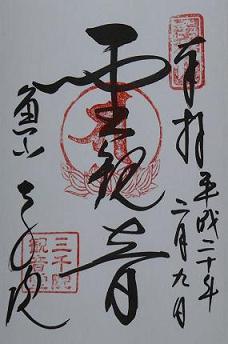 奉拝
平成二十年
二月九日
聖観音
魚山
三千院
三千院
観音堂